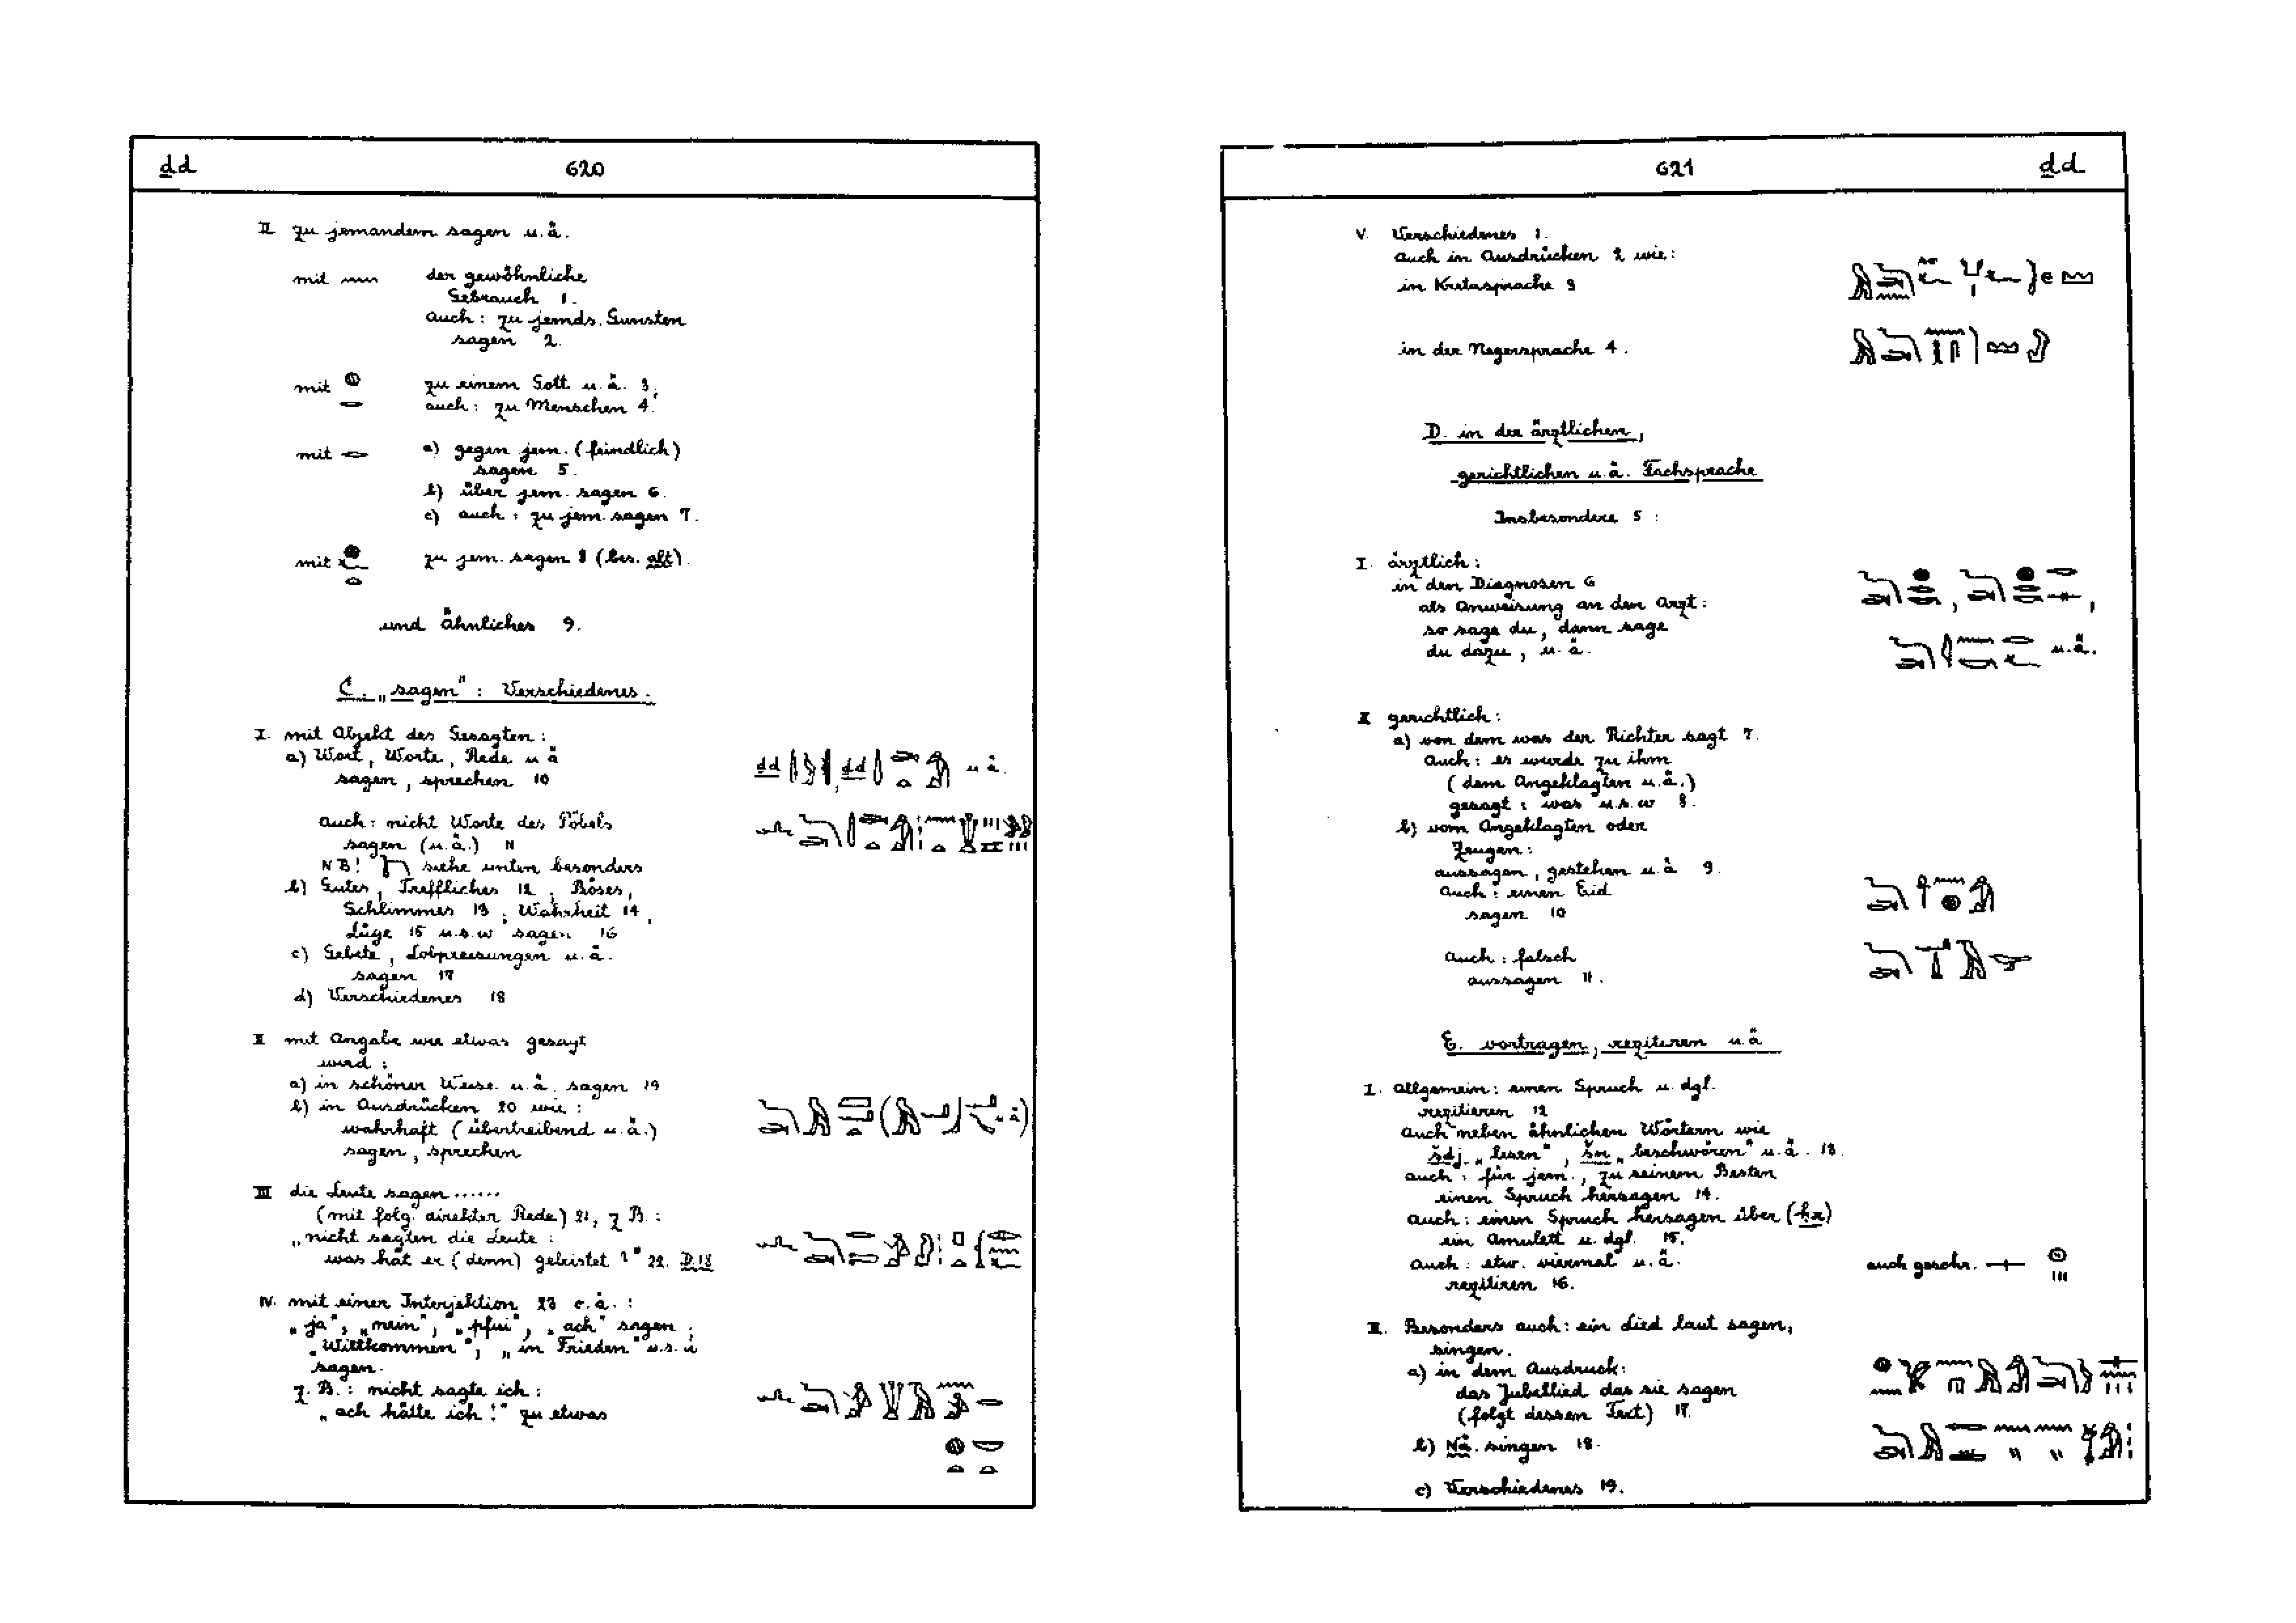 ḏd 620
II zu jemandem sagen u.ä.
mit 𓈖 der gewöhnliche
Gebrauch 1.
auch: zu jemds. Gunsten
sagen 2.
mit 𓐍𓂋 zu einem Gott u.ä. 3,
auch: zu Menschen 4.
mit 𓂋 a) gegen jem. (feindlich)
sagen 5.
b) über jem. sagen 6.
c) auch: zu jem. sagen 7.
mit 𓐍𓆑𓏏 zu jem. sagen 8 (bes. alt).
und ähnliches 9.
C. „sagen": Verschiedenes.
I. mit Objekt des Gesagten:
a) Wort, Worte, Rede u ä
sagen, sprechen 10 u ä.
auch: nicht Worte des Pöbels
sagen (u.ä.) 11
NB! siehe unten besonders
b) Gutes, Treffliches 12; Böses,
Schlimmes 13; Wahrheit 14,
Lüge 15 u.s.w sagen 16
c) Gebete, Lobpreisungen u.ä.
sagen 17
d) Verschiedenes 18
II mit Angabe wie etwas gesagt
wird:
a) in schöner Weise u.ä. sagen 19
b) in Ausdrücken 20 wie:
wahrhaft (übertreibend u.ä.) u ä)
sagen, sprechen
III die Leute sagen ......
(mit folg. direkter Rede) 21, z B.:
„nicht sagten die Leute:
was hat er (denn) geleistet?" 22. D.18
IV. mit einer Interjektion 23 o.ä.:
„ja", „nein", „pfui", „ach" sagen;
„Willkommen", „in Frieden" u.s.w
sagen.
z. B.: nicht sagte ich:
„ach hätte ich!" zu etwas
621 ḏd
V. Verschiedenes 1.
auch in Ausdrücken 2 wie:
in Kretasprache 3
in der Negersprache 4.
D. in der ärztlichen,
gerichtlichen u.ä. Fachsprache
Insbesondere 5:
I. ärztlich:
in den Diagnosen 6
als Anweisung an den Arzt:
so sage du, dann sage
du dazu, u.ä. u.ä.
II gerichtlich:
a) von dem was der Richter sagt 7.
Auch: es wurde zu ihm
(dem Angeklagten u.ä.)
gesagt: was u.s.w 8.
b) vom Angeklagten oder
Zeugen:
aussagen, gestehen u.ä 9.
Auch: einen Eid
sagen 10
Auch: falsch
aussagen 11.
E. vortragen, rezitieren u.ä
I. Allgemein: einen Spruch u. dgl.
rezitieren 12
auch neben ähnlichen Wörtern wie
šdj „lesen", šn „beschwören" u.ä. 13.
auch: für jem., zu seinem Besten
einen Spruch hersagen 14.
Auch: einen Spruch hersagen über (ḥr)
ein Amulett u. dgl. 15.
Auch: etw. viermal u.ä. auch geschr.
rezitieren 16.
II. Besonders auch: ein Lied laut sagen,
singen.
a) in dem Ausdruck:
das Jubellied das sie sagen
(folgt dessen Text) 17.
b) Nä. singen 18.
c) Verschiedenes 19.